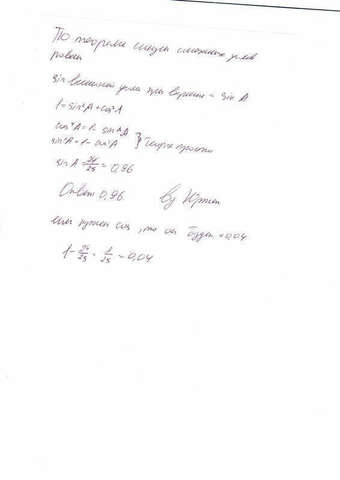 По теореме синусы смежных углов
равны
sin внешней угла при вершине = sin A
1 = sin²A + cos²A
cos²A = 1 - sin²A
sin²A = 1 - cos²A
sin A = 24/25 = 0,96
Ответ 0,96. By
нужен cos, то он будет = 0,04
1 - 24/25 = 1/25 = 0,04